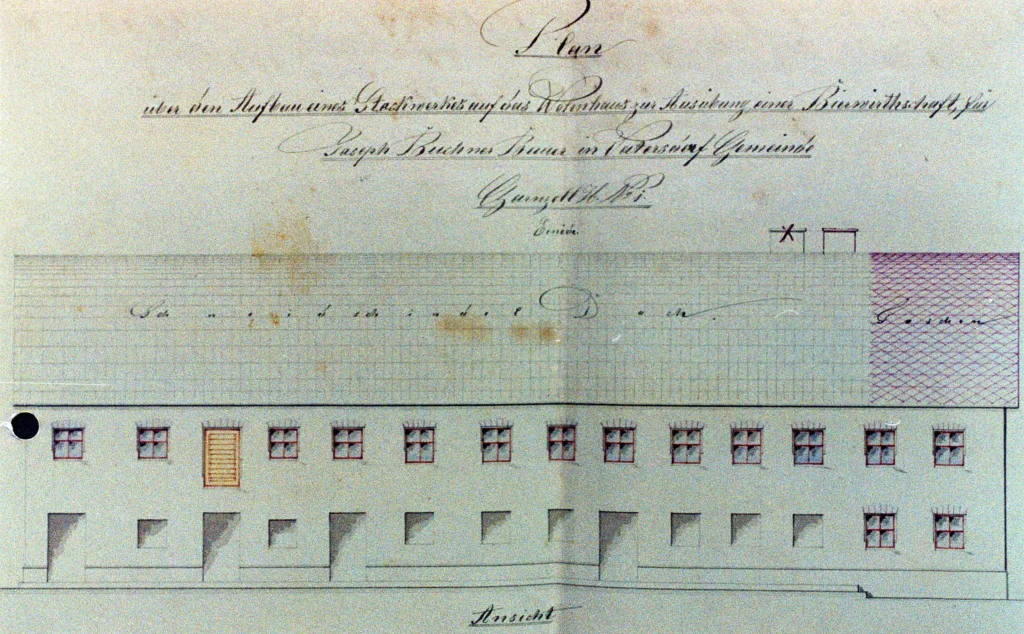 Plan
über den Aufbau eines Stockwerkes auf das Wohnhaus zur Ausübung einer Bierwirthschaft, für
Joseph Buchner Bauer in Patersdorf Gemeinde
H. No
Schneidschindel Dach.
Taschen
Ansicht